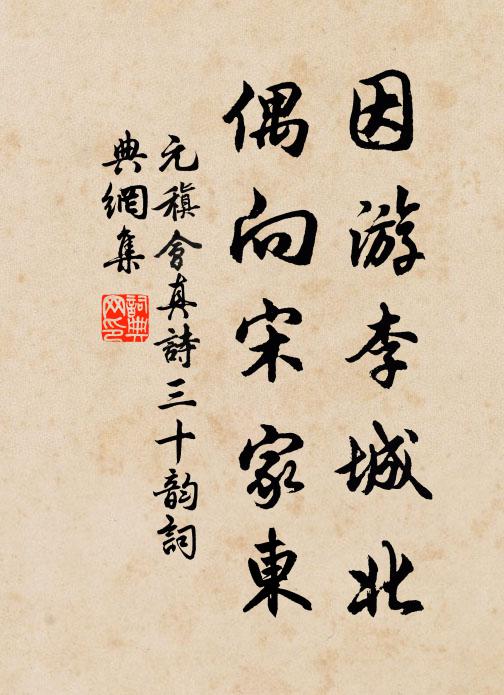 因游李城北
偶向宋家東
元稹會真詩三十韵詞
典網集
詞典
网印